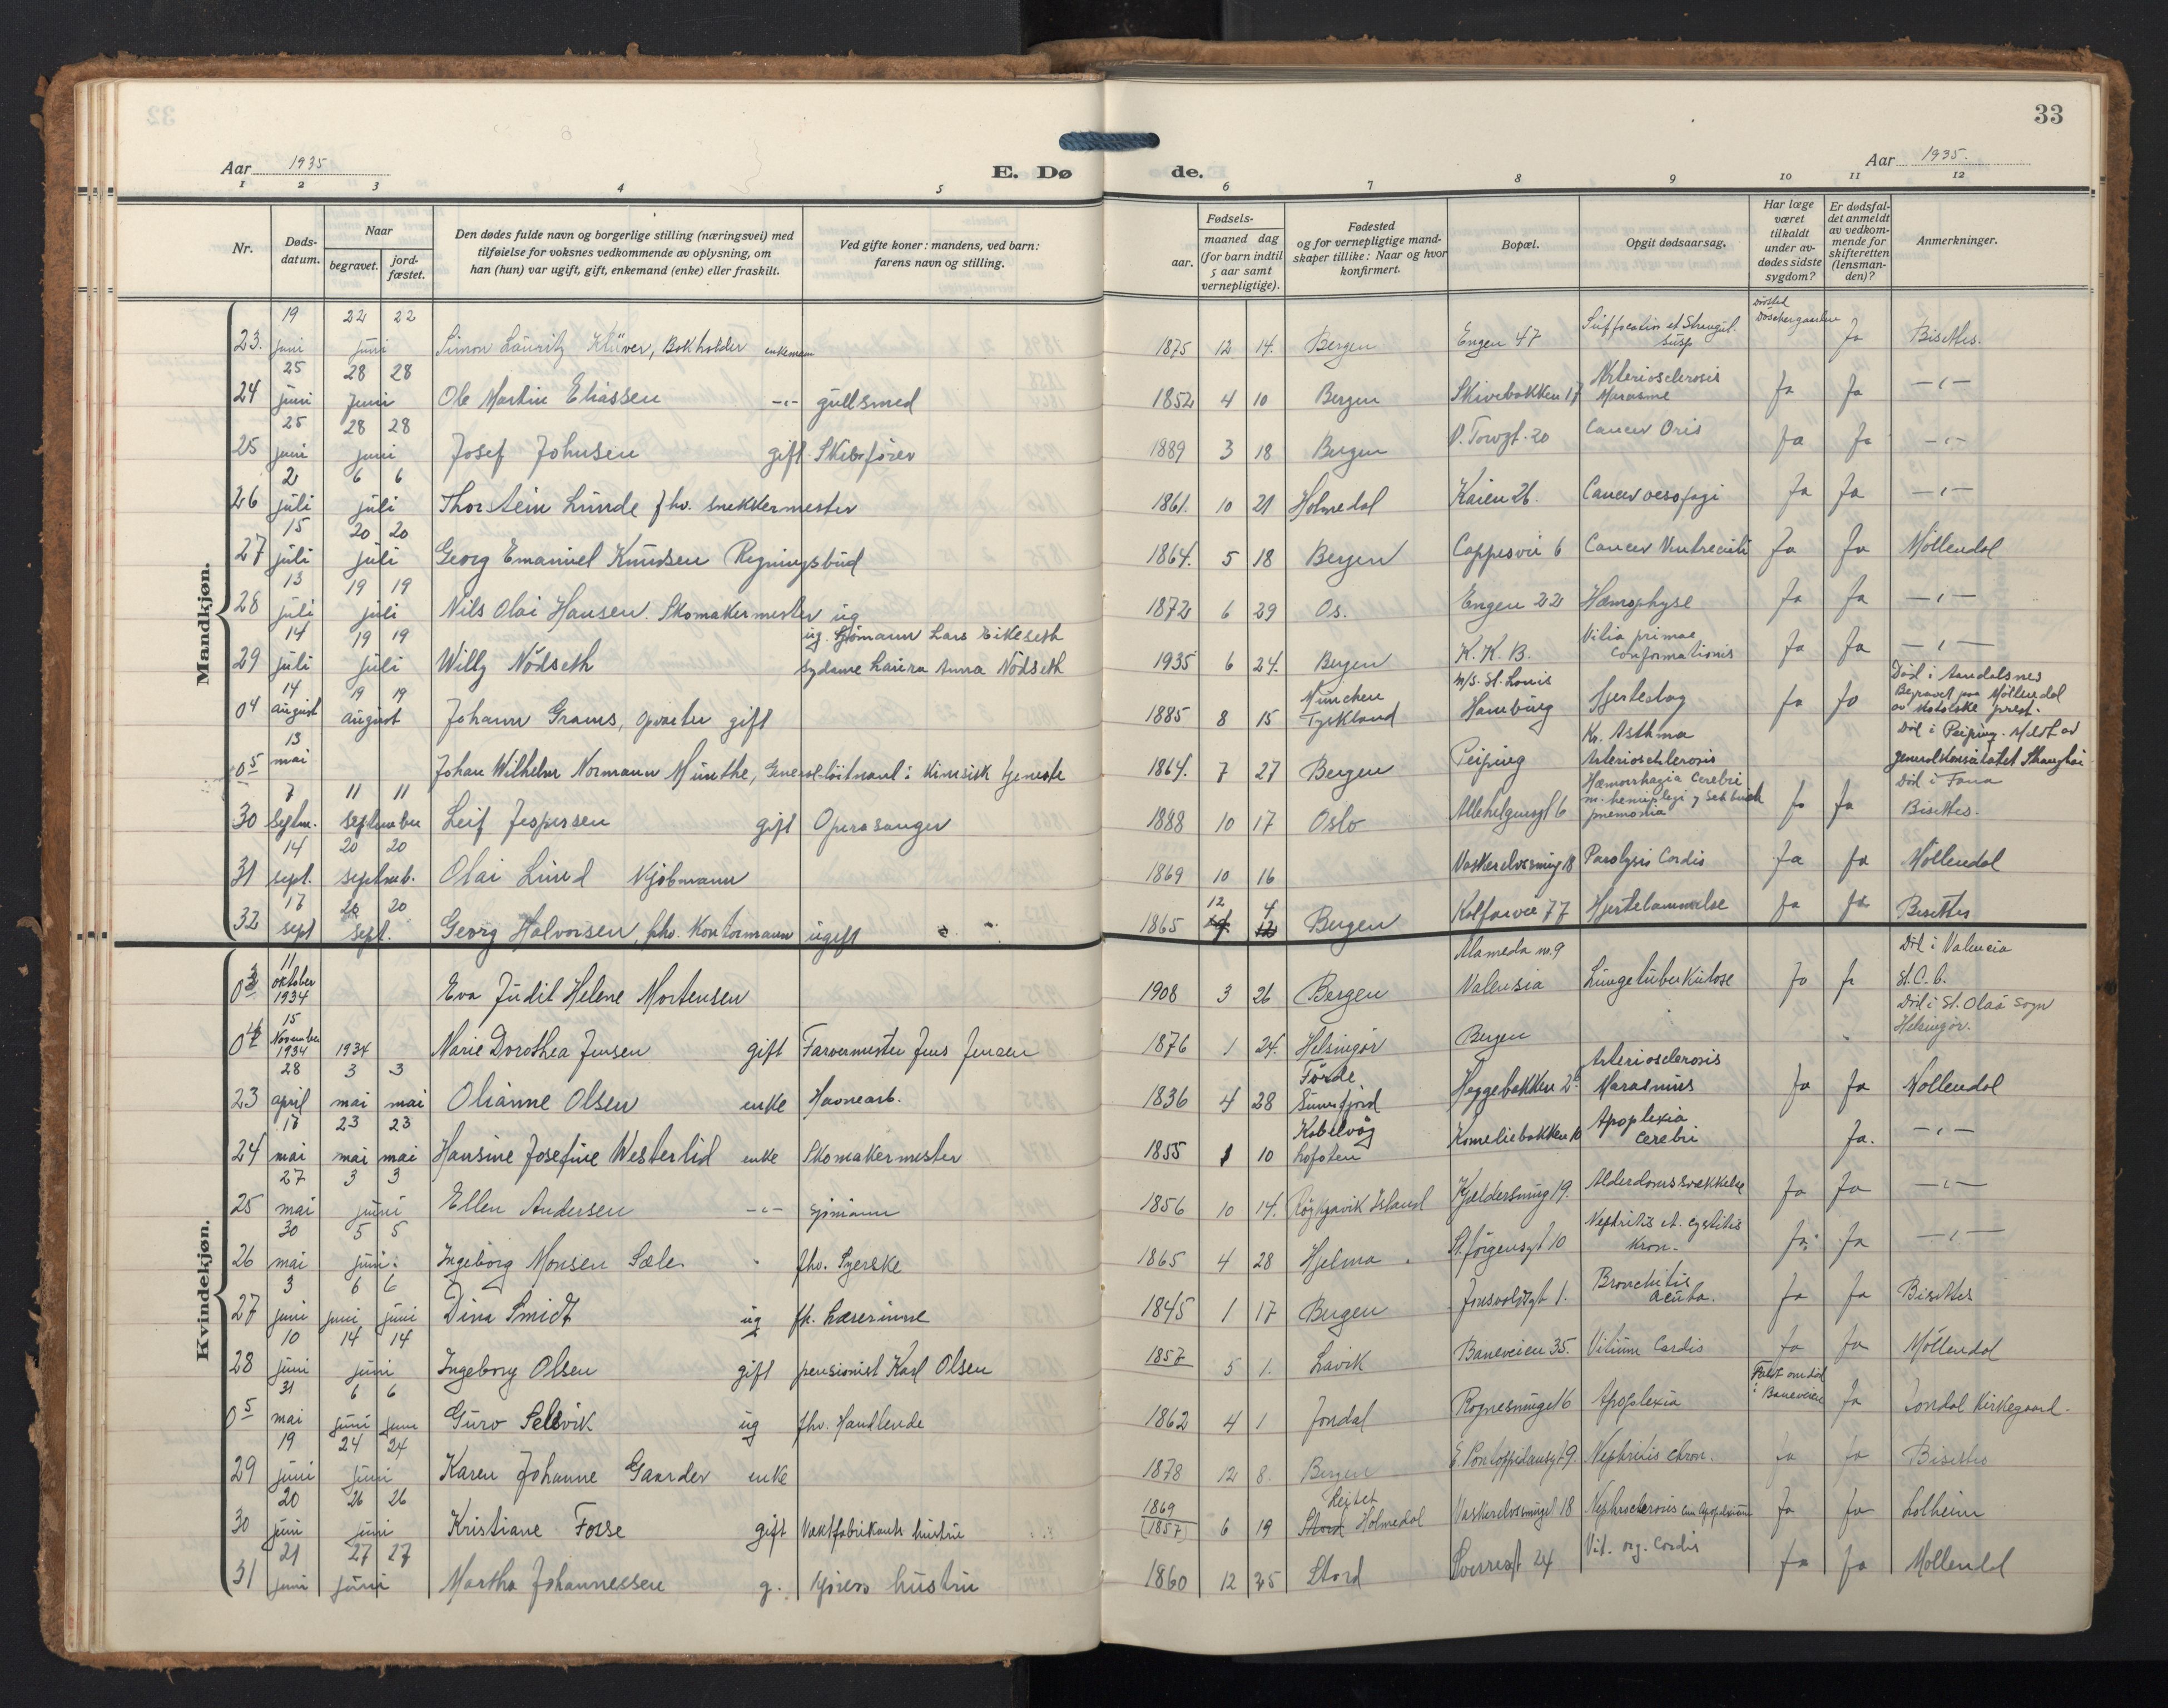 33
Aar 1935
E. Dø de.
Aar 1935.
1 2 3 4 5 6 7 8 9 10 11 12
Nr.
Døds-datum.
Naar
begravet.
jord-fæstet.
Den dødes fulde navn og borgerlige stilling (næringsvei) med
tilføielse for voksnes vedkommende av oplysning, om
han (hun) var ugift, gift, enkemand (enke) eller fraskilt.
Ved gifte koner: mandens, ved barn:
farens navn og stilling.
Fødsels-
aar.
maaned dag
(for barn indtil
5 aar samt
vernepligtige).
Fødested
og for vernepligtige mand-
skaper tillike: Naar og hvor
konfirmert.
Bopæl.
Opgit dødsaarsag.
Har læge
været
tilkaldt
under av-
dødes sidste
sygdom?
Er dødsfal-
det anmeldt
av vedkom-
mende for
skifteretten
(lensman-
den)?
Anmerkninger.
Mandkjøn.
23. 19 juni 22 22 juni Simon Lauritz Klüver, Bokholder enkemann 1875 12 14. Bergen Engen 47 Suffocation et Strangul. susp Ja Bisettes.
24 25 juni 28 28 juni Ole Martin Eliassen -"- gullsmed 1852 4 10 Bergen Skivebakken 17 Arteriosclerosis Marasme Ja Ja -"-
25 25 juni 28 28 juni Josef Johnsen gift Skibsfører 1889 3 18 Bergen V. Torvgt. 20 Cancer Oris Ja Ja -"-
26 2 juli 6 6 juli Thorstein Lunde fhv. snekkermester 1861. 10 21 Holmedal Kaien 26. Cancer oesofagi Ja Ja -"-
27 15 juli 20 20 juli Georg Emanuel Knudsen Regningsbud 1864. 5 18 Bergen Cappesvei 6 Cancer Ventriculi Ja Ja Möllendal
28 13 juli 19 19 juli Nils Olai Hansen. Skomakermester ug 1872 6 29 Os. Engen 22 Hæmophyse Ja Ja -"-
29 14 juli 19 19 juli Willy Nödseth ug. Sjömann Lars Eikeseth sydame Laura Anna Nödseth 1935 6 24. Bergen K. K. B. Vitia primae conformationis Ja Ja -"-
04 14 august 19 19 august Johann Grams, opvarter gift 1885 8 15 München Tyskland M/S. St. Louis Hamburg Hjerteslag Ja Ja Död i Aandalsnes Begravet paa Möllendal av katolske prest.
05 13 mai Johan Wilhelm Normann Munthe, General-löitnant i kinesisk tjeneste 1864. 7 27 Bergen Peiping Kr. Asthma Arteriosclerosis Död i Peiping. Meldt av generalkonsulatet Shanghai
30 7 Septm. 11 11 September Leif Jespersen gift Operasanger 1888 10 17 Oslo Allehelgensgt 6 Hæmorrhagia Cerebri m. hemiplegi pnemonia Ja Ja Död i Fana Bisettes.
31 14 sept. 20 20 septmb. Olai Lund Kjöbmann 1869 10 16 Vaskerelvssmug 18 Paralysis Cordis Ja Ja Möllendal
32 17 sept 20 20 sept. Georg Halvorsen, fhv. Kontormann ugift 1865 12 4 Bergen Kalfarvei 77 Hjertelammelse Ja Ja Bisettes
Kvindekjøn.
03 11 oktober 1934 Eva Judit Helene Mortensen 1908 3 26 Bergen Alameda nr. 9 Valensia Lungetuberkulose Ja Ja Död i Valencia St. C. 6.
04 15 November 1934 1934 Marie Dorothea Jensen gift Farvermester Jens Jensen 1876 1 24. Helsingör Bergen Död i St. Olai Sogn Helsingör.
23 28 april 3 mai 3 mai Olianne Olsen enke Havnearb. 1836 4 28 Förde Sunnfjord Heggebakken 2b Arteriosclerosis Marasmus Ja Ja Möllendal
24 17 mai 23 mai 23 mai Hansine Josefine Westerlid enke Skomakermester 1855 1 10 Kabelvåg Lofoten Korneliebakken 10 Apoplexia cerebri Ja. -"-
25 27 mai 3 3 juni Ellen Andersen -"- sjömann 1856 10 14. Røykjavik Island Kjeldersmug 19. Alderdomssvækkelse Ja Ja -"-
26 30 mai 5 5 juni. Ingeborg Monsen Sæle. fhv. Syerske 1865 4 28 Hjelma St. Jörgensgt 10 Nephritis et. cystitis kron. Ja Ja -"-
27 3 juni 6 juni 6 juni Dina Smidt ug fh. Lærerinne 1845 1 17 Bergen Jonsvoldsgt 1. Bronchitis acuta. Ja Ja Bisettes
28 10 juni 14 14 juni Ingeborg Olsen gift pensionist Karl Olsen 1857 5 1. Lavik Baneveien 35. Vitium Cordis Ja Ja Möllendal
05 31 mai 6 juni 6 juni Guro Selsvik ug fhv. Handlende 1862 4 1 Jondal Rognesmuget 6 Apoplexia Falt om död i Baneveien Ja Jondal Kirkegaard.
29 19 juni 24 24 juni Karen Johanne Gaarder enke 1878 12 8. Bergen E. Pontoppidansgt 9. Nephritis chron. Ja Ja Bisettes
30 20 juni 26 26 juni Kristiane Fosse gift Vaktfabrikants hustru 1869 (1857) 6 19 Stord Holmedal Vaskerelvssmuget 18 Nephrosclerosis cum Apoplexiam Ja Ja Solheim
31 21 juni 27 27 juni Martha Johannessen g. kjörers hustru 1860 12 25 Stord Sverresgt 24 Vit. org. Cordis Ja Ja Möllendal